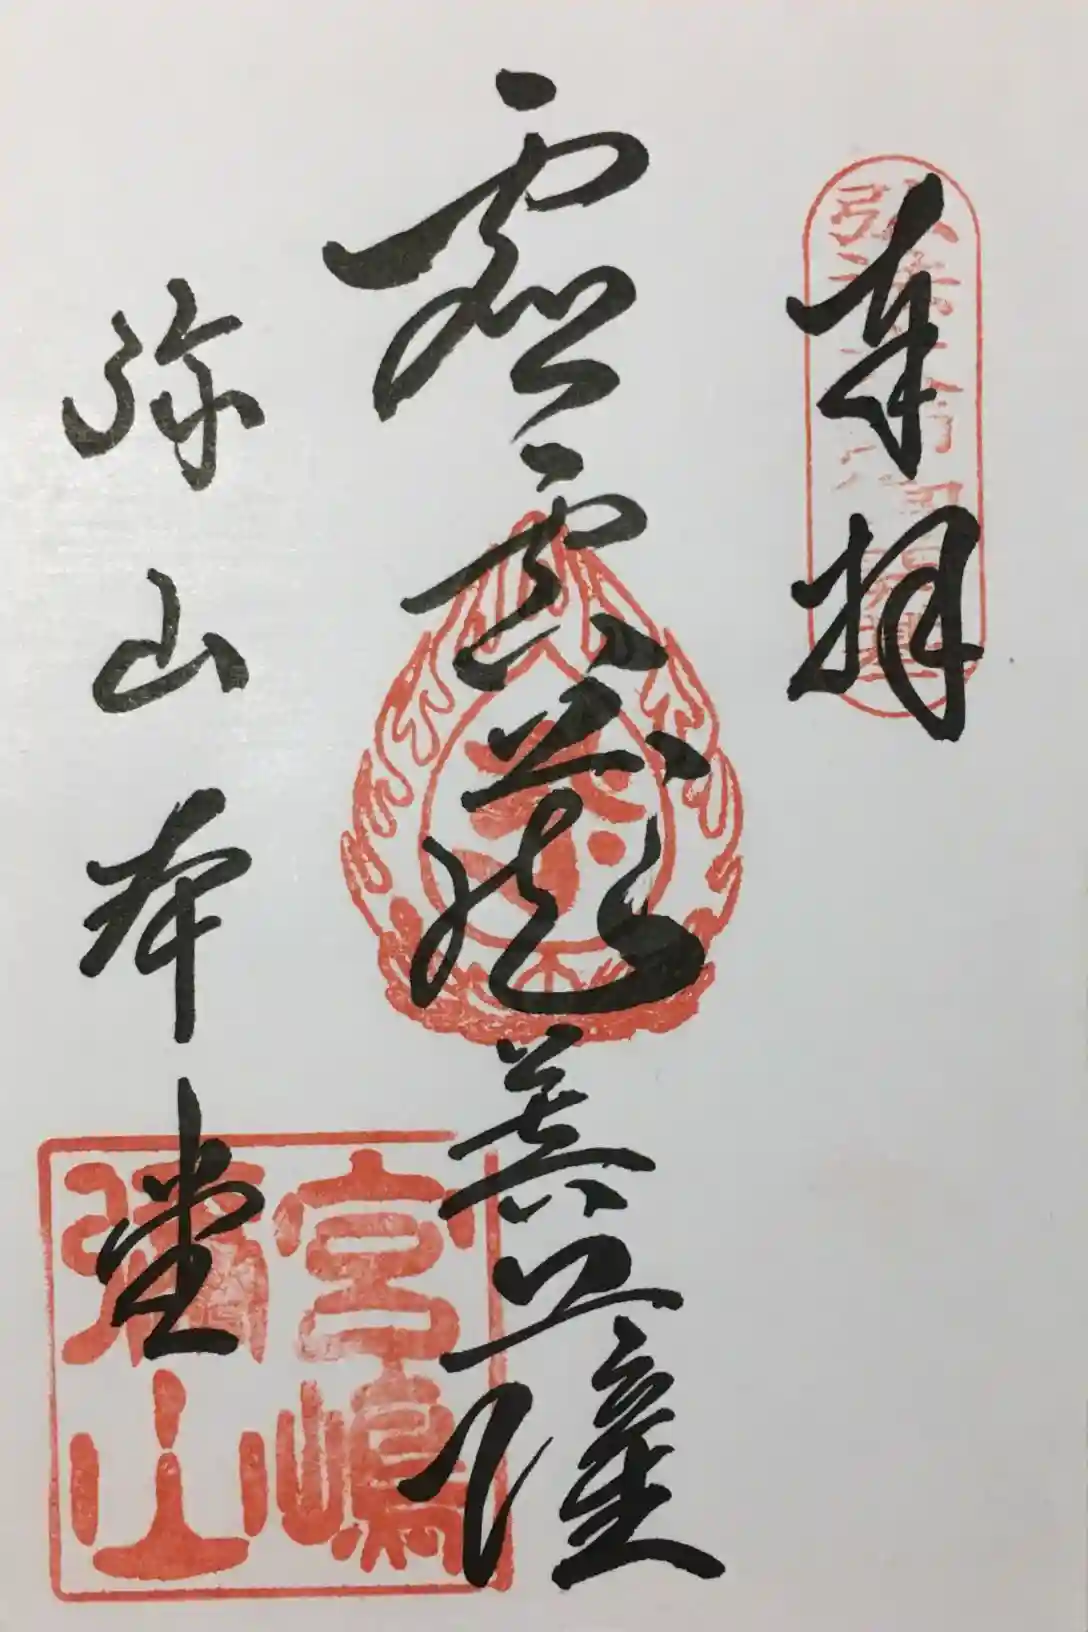 奉拝
虚空蔵菩薩
弥山本堂
宮嶋
彌山